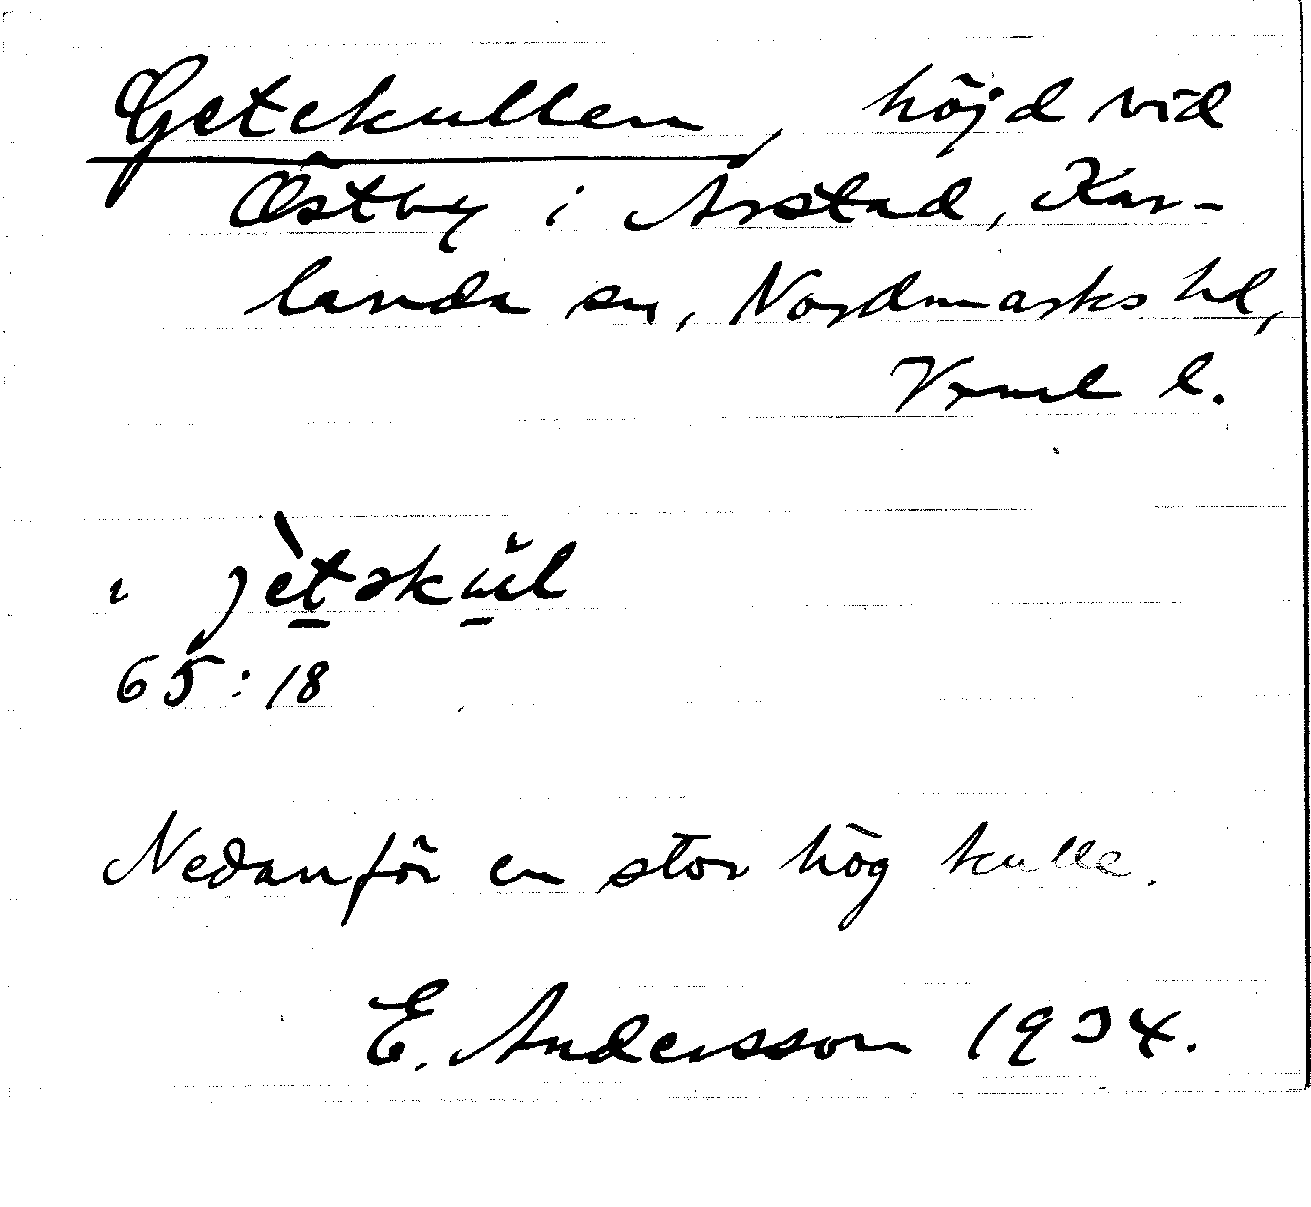 Getekullen, höjd vid
Östby i Årstad, Kar-
landa sn, Nordmarks hd,
Vrml l.
i jètəkŭl
65:18
Nedanför en stor hög kulle.
E. Andersson 1934.